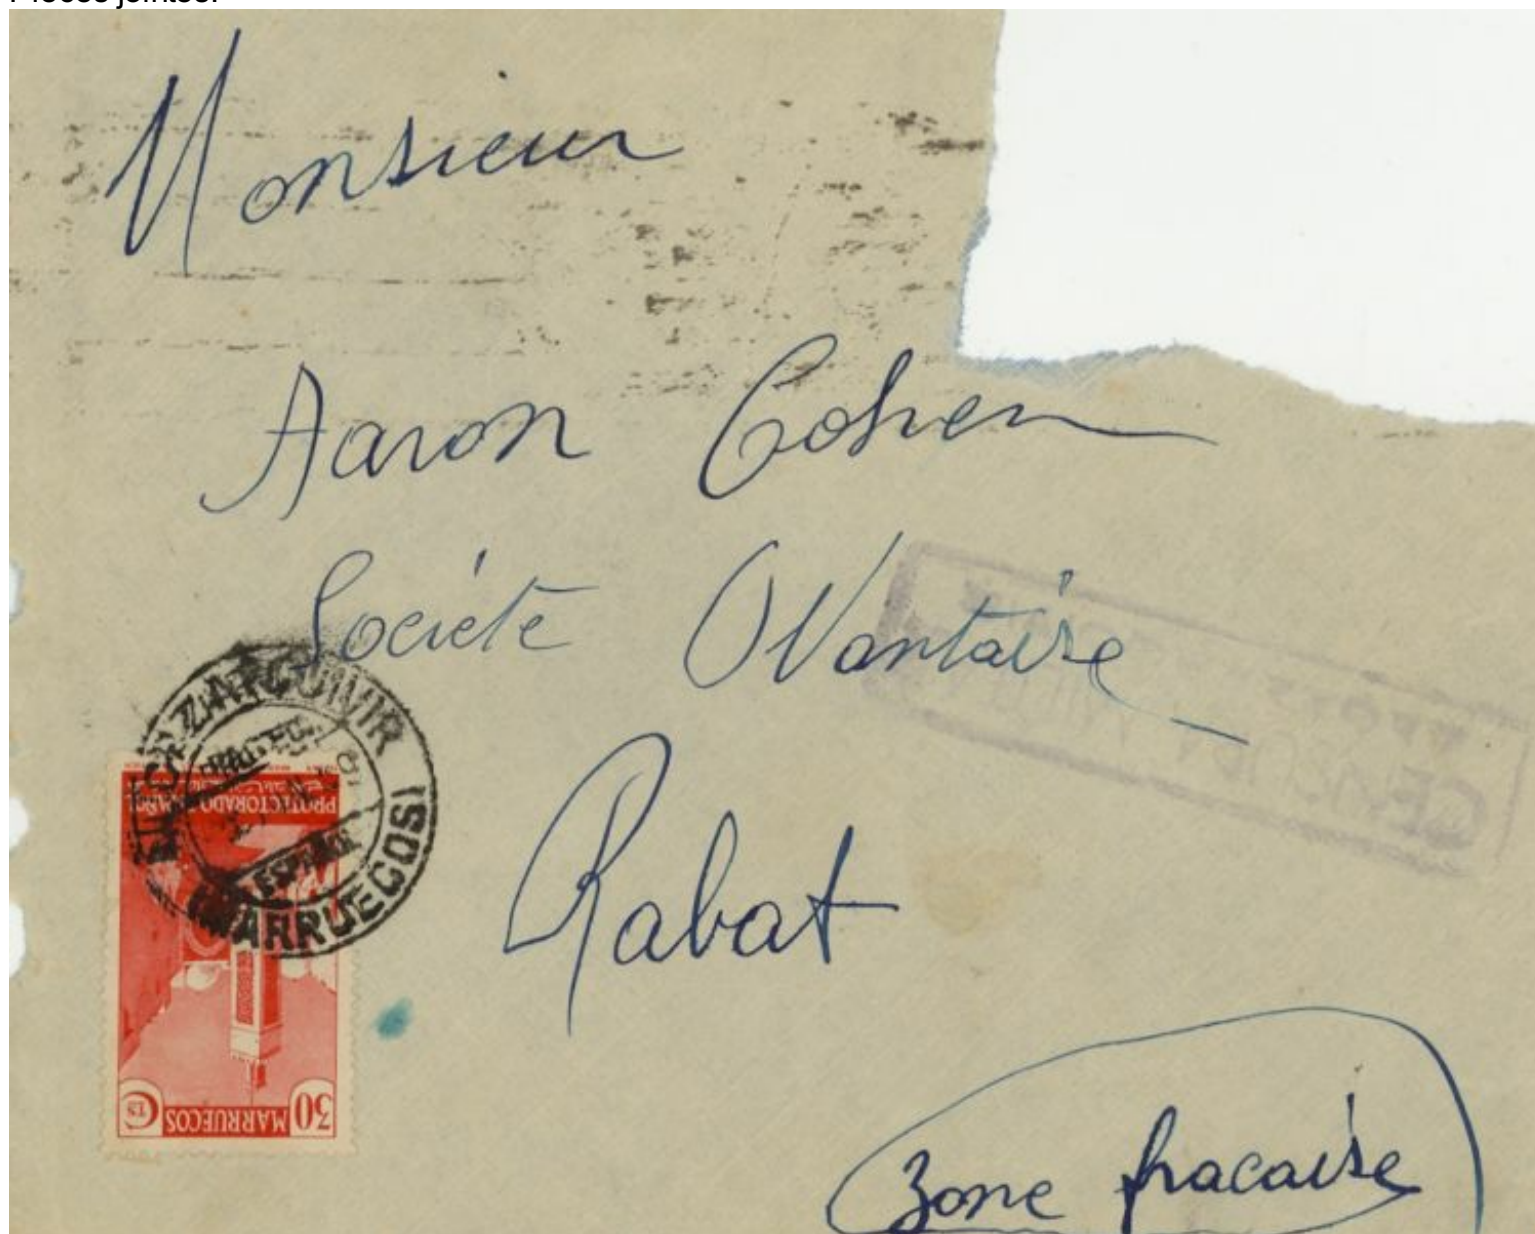 Monsieur
Aaron Cohen
Société OVantaire
Rabat
Zone fracaise
ALCAZARQUIVIR
(MARRUECOS)
PROTECTORADO ESPAÑOL
30 MARRUECOS CTS
CENSURA